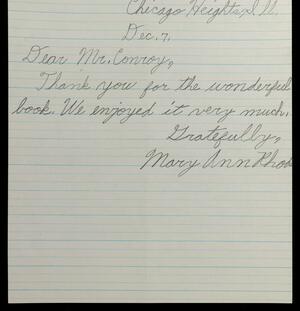 Chicago Heights, Ill.
Dec. 7,
Dear Mr. Conroy,
Thank you for the wonderful
book. We enjoyed it very much.
Gratefully,
Mary Ann